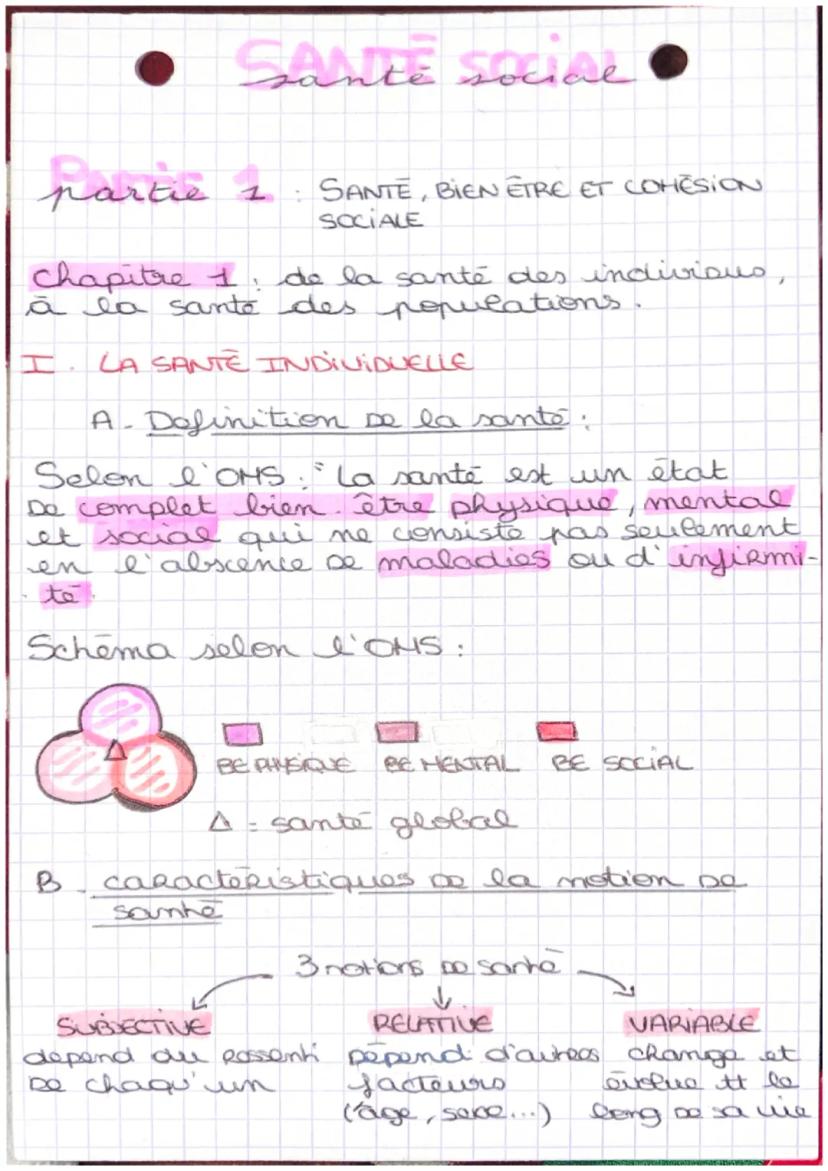 SANTÉ SOCIAL
santé social
Partie 1
partie 1 : SANTÉ, BIEN ÊTRE ET COHÉSION
SOCIALE
chapitre 1 : de la santé des individus,
à la santé des populations.
I. LA SANTÉ INDIVIDUELLE
A - Definition de la santé :
Selon l'OMS : " La santé est un état
de complet bien-être physique, mental
et social qui ne consiste pas seulement
en l'abscence de maladies ou d'infirmi-
té.
Schéma selon l'OMS :
Δ
BE PHYSIQUE BE MENTAL BE SOCIAL
Δ = santé global
B. caractéristiques de la notion de
santé
3 notions de santé
SUBJECTIVE RELATIVE VARIABLE
depend du ressenti dépend d'autres change et
de chaqu'un facteurs évolue tt le
(âge, sexe...) long de sa vie